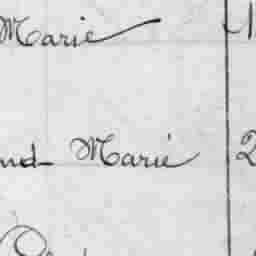 Marie
nd Marie 2